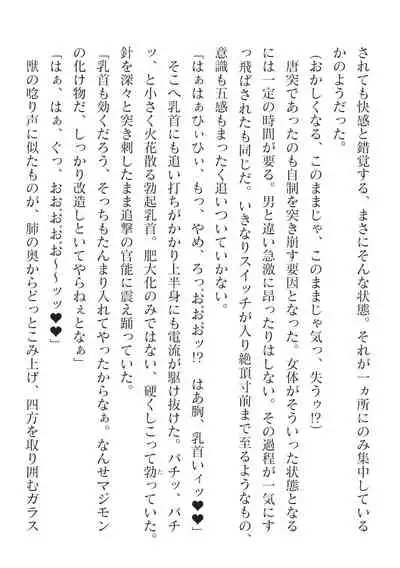 されても快感と錯覚する、まさにそんな状態。それが一ヵ所にのみ集中している
かのようだった。
(おかしくなる、このままじゃ、このままじゃ気っ、失うゥ!?)
唐突であったのも自制を突き崩す要因となった。女体がそういった状態となる
には一定の時間が要る。男と違い急激に昂ったりはしない。その過程が一気にす
っ飛ばされたも同じだ。いきなりスイッチが入り絶頂寸前まで至るようなもの、
意識も五感もまったく追いついていかない。
「はぁはぁひぃひぃ、もっ、やめ、ろっ、おおおッ!? はあ胸、乳首いィッ♥♥」
そこへ乳首にも追い打ちがかかり上半身にも電流が駆け抜けた。バチッ、バチ
ッ、と小さく火花散る勃起乳首。肥大化のみではない、硬くしこって勃っていた。
針を深々と突き刺したまま追撃の官能に震え踊っていた。
「乳首も効くだろう、そっちもたんまり入れてやったからなぁ。なんせマジモン
の化け物だ、しっかり改造しといてやらねぇとなぁ」
「はぁ、はぁ、ぐっ、おおおおおお～～ッッ♥♥」
獣の唸り声に似たものが、肺の奥からどっとこみ上げ、四方を取り囲むガラス